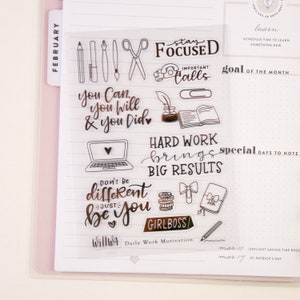 FEBRUARY
stay
FOCUSED
IMPORTANT
Calls
You Can,
You Will
& You Did
HARD WORK
brings
BIG RESULTS
DON'T BE
different
JUST
be you
GIRLBOSS
Willwa
Daily Work Motivation
learn
SCHEDULE TIME TO LEARN
SOMETHING NEW
goal OF THE MONTH
special DAYS TO NOTE
DAYLIGHT SAVING TIME BEGINS
ST. PATRICK'S DAY